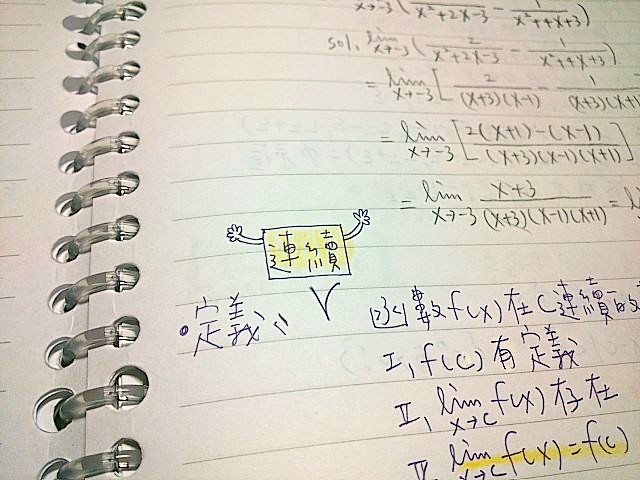 lim x→-3 (2/x²+2x-3 - 1/x²+4x+3)
sol. lim x→-3 (2/x²+2x-3 - 1/x²+4x+3)
= lim x→-3 [2/(x+3)(x-1) - 1/(x+3)(x+1)
= lim x→-3 [2(x+1)-(x-1)/(x+3)(x-1)(x+1)]
= lim x→-3 x+3/(x+3)(x-1)(x+1) = l
連續
•定義：
函數f(x)在C連續的
I, f(c)有定義
II, lim x→c f(x)存在
lim x→c f(x)=f(c)